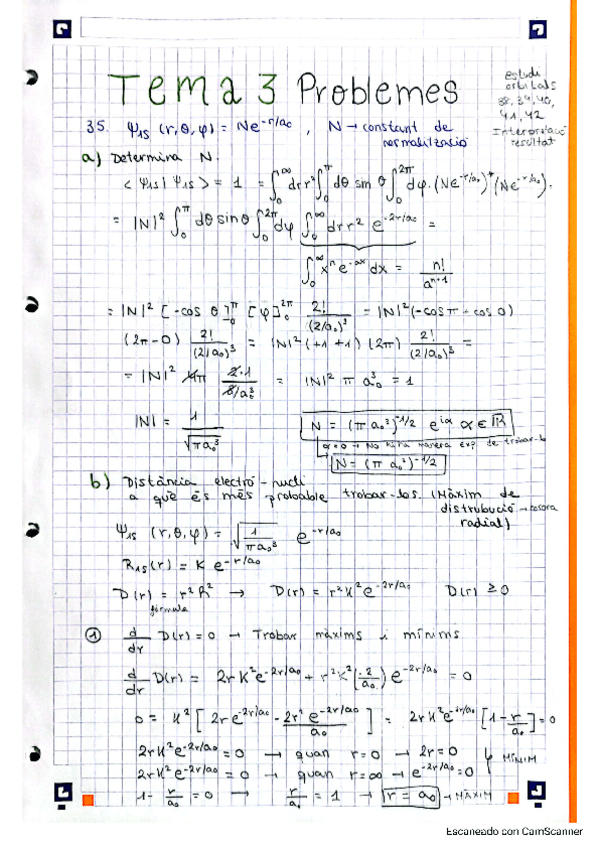 Tema 3 Problemes
estudi
orbitals
38, 39, 40,
41, 42
Interpretació
resultat
35. Ψ1s (r, θ, φ) = N e^{-r/a₀} , N → constant de
normalització
a) Determina N.
< Ψ1s | Ψ1s > = 1 = ∫₀^∞ dr r² ∫₀^π dθ sin θ ∫₀^{2π} dφ · (N e^{-r/a₀})* (N e^{-r/a₀}).
= |N|² ∫₀^π dθ sin θ ∫₀^{2π} dφ ∫₀^∞ dr r² e^{-2r/a₀} =
∫₀^∞ xⁿ e^{-ax} dx = n!/a^{n+1}
= |N|² [-cos θ]₀^π [φ]₀^{2π} 2!/(2/a₀)³ = |N|² (-cos π - cos 0)
(2π - 0) 2!/(2/a₀)³ = |N|² (+1 +1) (2π) 2!/(2/a₀)³ =
= |N|² 4π 2·1/8/a₀³ = |N|² π a₀³ = 1
|N| = 1/√πa₀³
N = (π a₀³)^{-1/2} e^{iα} α ∈ ℝ
α = 0 → No hi ha manera exp. de trobar-la
N = (π a₀³)^{-1/2}
b) Distància electró - nucli
a què és més probable trobar-los. (Màxim de
distribució → 
radial)
Ψ1s (r, θ, φ) = √1/πa₀³ e^{-r/a₀}
R1s (r) = K e^{-r/a₀}
D(r) = r² R² → D(r) = r² K² e^{-2r/a₀} D(r) ≥ 0
fórmula
① d/dr D(r) = 0 → Trobar màxims i mínims
d/dr D(r) = 2r K² e^{-2r/a₀} + r² K² (-2/a₀) e^{-2r/a₀} = 0
0 = K² [2r e^{-2r/a₀} - 2r² e^{-2r/a₀}/a₀] = 2r K² e^{-2r/a₀} [1 - r/a₀] = 0
2r K² e^{-2r/a₀} = 0 → quan r = 0 → 2r = 0
MÍNIM
2r K² e^{-2r/a₀} = 0 → quan r = ∞ → e^{-2r/a₀} = 0
1 - r/a₀ = 0 → r/a₀ = 1 → r = a₀ → MÀXIM
Escaneado con CamScanner